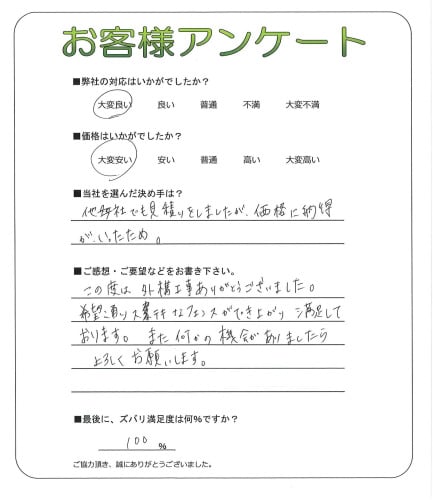 お客様アンケート
■弊社の対応はいかがでしたか?
大変良い 良い 普通 不満 大変不満
■価格はいかがでしたか?
大変安い 安い 普通 高い 大変高い
■当社を選んだ決め手は?
他数社でも見積りをしましたが、価格に納得
がいったため。
■ご感想・ご要望などをお書き下さい。
この度は外構工事ありがとうございました。
希望通りステキなフェンスができ上がり満足して
おります。また何かの機会がありましたら
よろしくお願いします。
■最後に、ズバリ満足度は何%ですか?
100 %
ご協力頂き、誠にありがとうございました。